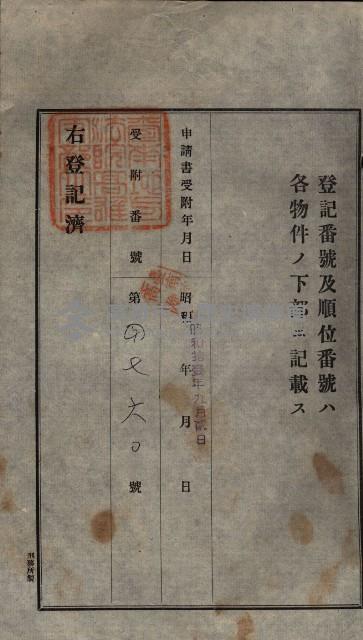 登記番號及順位番號ハ
各物件ノ下部ニ記載ス
申請書受附年月日
昭和 年 月 日
昭和拾壹年九月貳日
受附番號
第 四七六〇 號
右登記濟
刑務所製